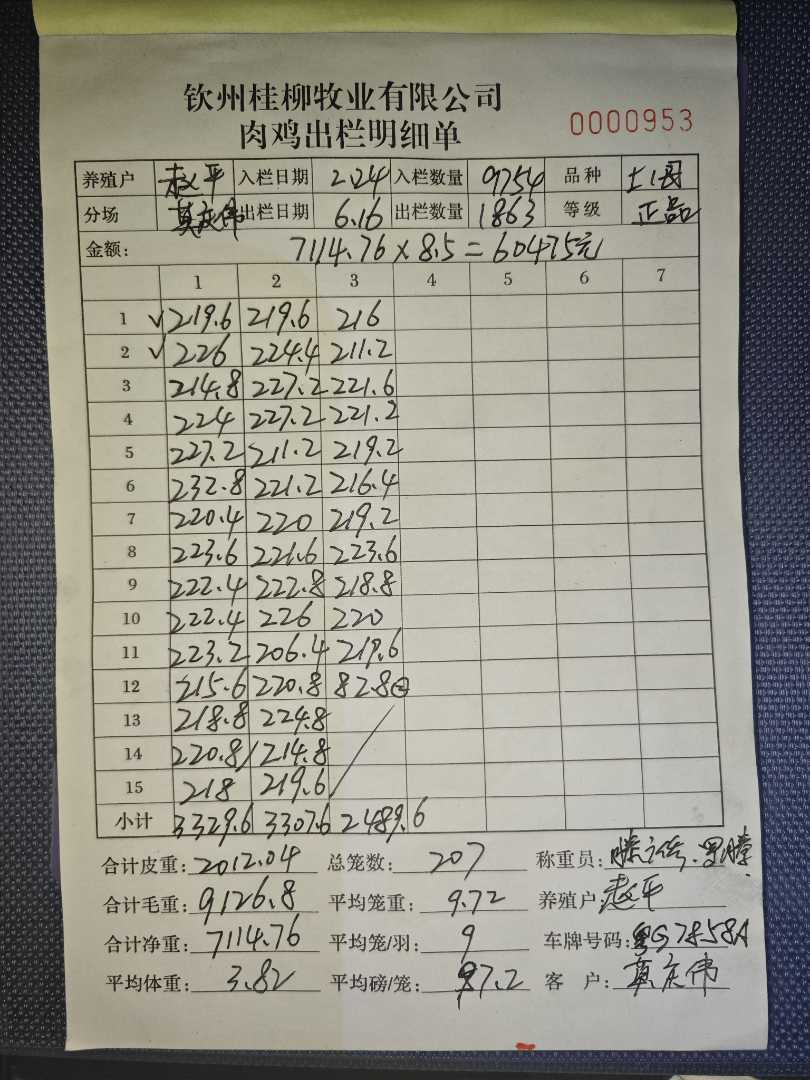 钦州桂柳牧业有限公司
肉鸡出栏明细单
0000953
养殖户 赵平 入栏日期 2.24 入栏数量 9754 品种 土2阉
分场 莫庆伟 出栏日期 6.16 出栏数量 1863 等级 正品
金额: 7114.76×8.5=60475元
1 2 3 4 5 6 7
1 √ 219.6 219.6 216
2 √ 226 224.4 211.2
3 214.8 227.2 221.6
4 224 227.2 221.2
5 227.2 211.2 219.2
6 232.8 221.2 216.4
7 220.4 220 219.2
8 223.6 221.6 223.6
9 222.4 222.8 218.8
10 222.4 226 220
11 223.2 206.4 219.6
12 215.6 220.8 82.8
13 218.8 224.8
14 220.8 214.8
15 218 219.6
小计 3329.6 3307.6 2489.6
合计皮重: 2012.04 总笼数: 207 称重员:
合计毛重: 9126.8 平均笼重: 9.72 养殖户: 赵平
合计净重: 7114.76 平均笼/羽: 9 车牌号码: 粤G7858A
平均体重: 3.82 平均磅/笼: 87.2 客户: 莫庆伟